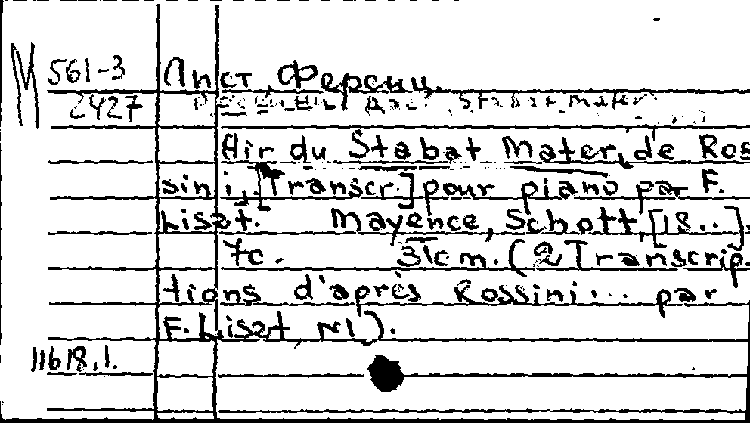 М 561-3 Лист, Ференц.
2427 Stabat Mater
Air du Stabat Mater, de Ros
sini, [Transcr.] pour piano par F.
Liszt. Mayence, Schott, [18..].
7c. 31cm. (2 Transcrip
tions d'après Rossini... par
F. Liszt, №1).
11618.1.